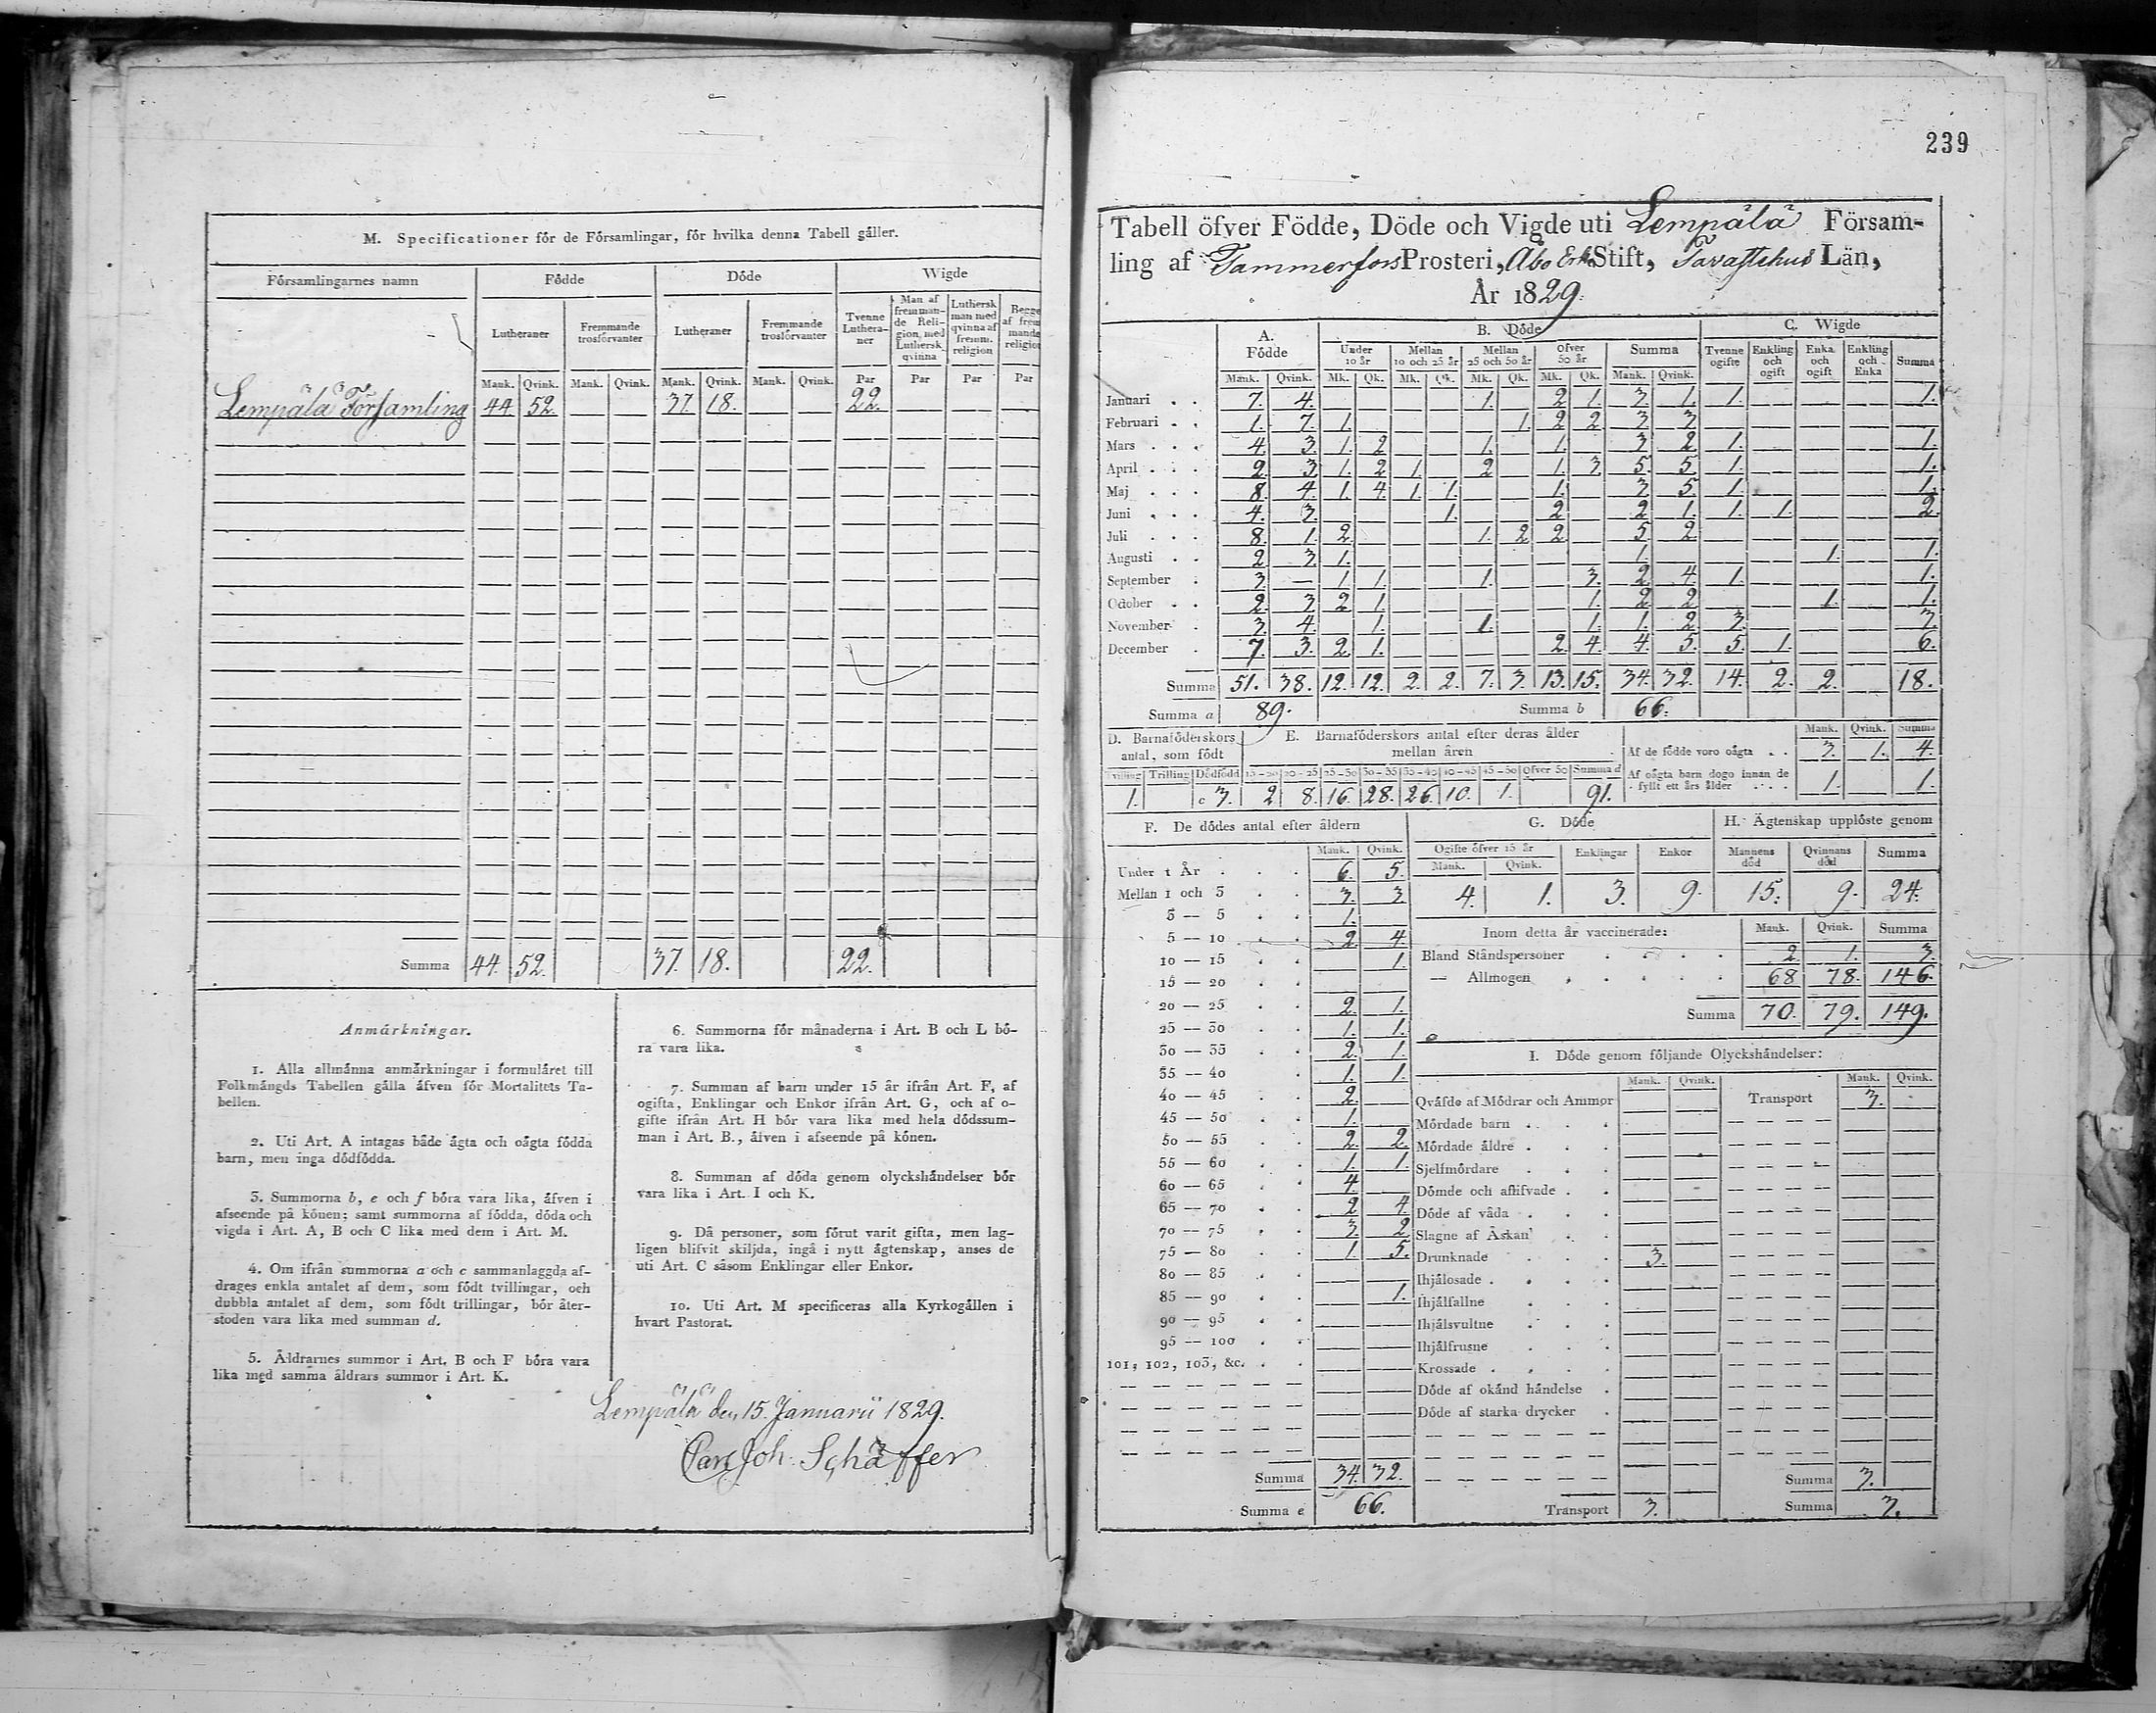 M. Specificationer för de Församlingar, för hvilka denna Tabell gäller.
Församlingarnes namn | Födde | Döde | Wigde
Lutheraner | Fremmande trosförvanter | Lutheraner | Fremmande trosförvanter | Tvenne Lutheraner | Man af fremmande Religion, med Luthersk qvinna | Luthersk man med qvinna af fremm. religion | Begge af frem mande religion
Mank. Qvink. Mank. Qvink. Mank. Qvink. Mank. Qvink. Par Par Par Par
Lempälä Församling 44. 52. 37. 18. 22.
Summa 44. 52. 37. 18. 22.
Anmärkningar.
1. Alla allmänna anmärkningar i formuläret till
Folkmängds Tabellen gälla äfven för Mortalitets Ta-
bellen.
2. Uti Art. A intagas både ägta och oägta födda
barn, men inga dödfödda.
3. Summorna b, e och f böra vara lika, äfven i
afseende på könen; samt summorna af födda, döda och
vigda i Art. A, B och C lika med dem i Art. M.
4. Om ifrån summorna a och c sammanlaggda af-
drages enkla antalet af dem, som födt tvillingar, och
dubbla antalet af dem, som födt trillingar, bör åter-
stoden vara lika med summan d.
5. Åldrarnes summor i Art. B och F böra vara
lika med samma åldrars summor i Art. K.
6. Summorna för månaderna i Art. B och L bö-
ra vara lika.
7. Summan af barn under 15 år ifrån Art. F, af
ogifta, Enklingar och Enkor ifrån Art. G, och af o-
gifte ifrån Art. H bör vara lika med hela dödssum-
man i Art. B., äfven i afseende på könen.
8. Summan af döda genom olyckshändelser bör
vara lika i Art. I och K.
9. Då personer, som förut varit gifta, men lag-
ligen blifvit skiljda, ingå i nytt ägtenskap, anses de
uti Art. C såsom Enklingar eller Enkor.
10. Uti Art. M specificeras alla Kyrkogällen i
hvart Pastorat.
Lempälä den 15. Januarii 1829.
Carl Joh. Schäffer
239
Tabell öfver Födde, Döde och Vigde uti Lempälä Försam-
ling af Tammerfors Prosteri, Åbo Erke Stift, Tavastehus Län,
År 1829.
A. Födde | B. Döde | C. Wigde
Under 10 år | Mellan 10 och 25 år | Mellan 25 och 50 år | Öfver 50 år | Summa | Tvenne ogifte | Enkling och ogift | Enka och ogift | Enkling och Enka | Summa
Mank. Qvink. Mk. Qk. Mk. Qk. Mk. Qk. Mk. Qk. Mank. Qvink.
Januari 7. 4. 1. 2 1. 3. 1. 1. 1.
Februari 1. 7. 1. 1. 2 2. 3 3
Mars 4. 3. 1. 2 1. 1. 3 2 1. 1.
April 2. 3 1. 2 1. 2 1. 3 5 5. 1. 1.
Maj 8. 4. 1. 4. 1. 1. 1. 3. 5. 1. 1.
Juni 4. 3. 1. 2 2 1. 1. 1. 2.
Juli 8. 1. 2. 1. 2 2 5 2
Augusti 2 3 1. 1. 1. 1.
September 3. — 1. 1. 1. 3. 2 4. 1. 1.
October 2. 3 2 1. 1. 2 2 1. 1.
November 3. 4. 1. 1. 1. 1. 2 3. 3.
December 7. 3. 2. 1. 2 4. 4. 5. 5. 1. 6.
Summa 51. 38. 12. 12. 2. 2. 7. 3. 13. 15. 34. 32. 14. 2. 2. 18.
Summa a 89. Summa b 66.
D. Barnaföderskors antal, som födt
Tvilling Trilling Dödfödd
1. c 3.
E. Barnaföderskors antal efter deras ålder mellan åren
15—20 20—25 25—30 30—35 35—40 40—45 45—50 Öfver 50 Summa d
2 8. 16. 28. 26. 10. 1. 91.
Mank. Qvink. Summa
Af de födde voro oägta 3. 1. 4.
Af oägta barn dogo innan de fyllt ett års ålder 1. 1.
F. De dödes antal efter åldern
Mank. Qvink.
Under 1 År 6. 5.
Mellan 1 och 3 3. 3
3 — 5 1.
5 — 10 2 4.
10 — 15 1.
15 — 20
20 — 25 2. 1.
25 — 30 1. 1.
30 — 35 2. 1.
35 — 40 1. 1.
40 — 45 2.
45 — 50 1.
50 — 55 2. 2.
55 — 60 1. 1.
60 — 65 4.
65 — 70 2 4.
70 — 75 3. 2.
75 — 80 1. 5.
80 — 85
85 — 90 1.
90 — 95
95 — 100
101, 102, 103, &c.
Summa 34. 32.
Summa e 66.
G. Döde
Ogifte öfver 15 år | Enklingar | Enkor
Mank. Qvink.
4. 1. 3. 9.
H. Ägtenskap upplöste genom
Mannens död | Qvinnans död | Summa
15. 9. 24.
Inom detta år vaccinerade: Mank. Qvink. Summa
Bland Ståndspersoner 2 1. 3.
— Allmogen 68 78. 146.
Summa 70. 79. 149.
I. Döde genom följande Olyckshändelser:
Mank. Qvink. Mank. Qvink.
Qväfde af Mödrar och Ammor Transport 3.
Mördade barn
Mördade äldre
Sjelfmördare
Dömde och aflifvade
Döde af våda
Slagne af Åskan
Drunknade 3.
Ihjälosade
Ihjälfallne
Ihjälsvultne
Ihjälfrusne
Krossade
Döde af okänd händelse
Döde af starka drycker
Summa 3.
Transport 3. Summa 3.